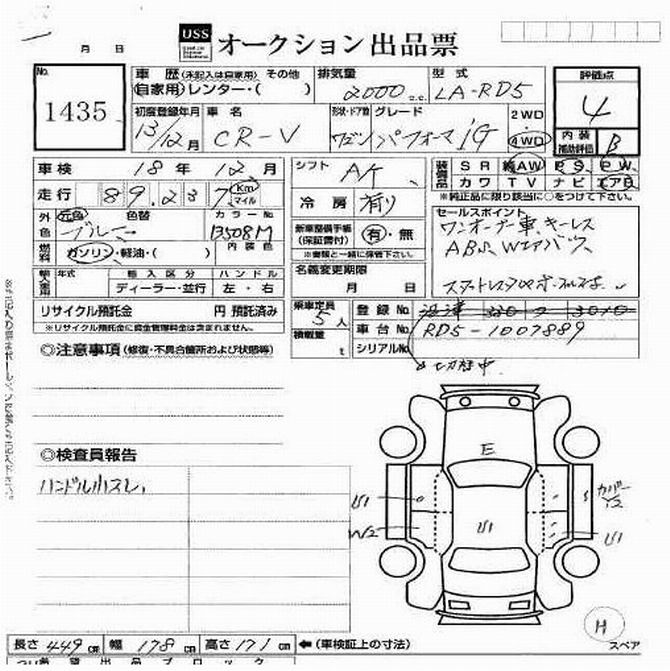 月 日
USS オークション出品票
No.
1435
車歴 (未記入は自家用) その他 排気量 型式
自家用 レンター・( ) 2000 c.c. LA-RD5
評価点
4
初度登録年月 車名 形状・ドア数 グレード 2WD
13/12月 CR-V ワゴン パフォーマ iG 4WD
内装 補助評価 B
車検 18年12月
シフト A/T
装備品 SR AW PS PW
カワ TV ナビ
※純正品に限り該当に○をつけて下さい。
走行 89,237 Km マイル
冷房 有り
外色 元色 色替 カラーNo.
ブルー B508M
内装色
セールスポイント
ワンオーナー車、キーレス
ABS、Wエアバック、
燃料 ガソリン・軽油・( )
新車整備手帳 (保証書付) 有・無
※書類と一緒に保管下さい。
輸入車用 年式 輸入区分 ハンドル
ディーラー・並行 左・右
名義変更期限
月 日
リサイクル預託金 円 預託済み
※リサイクル預託金に資金管理料金は含まれません。
乗車定員 5人
積載量 t
登録No.
車台No. RD5-1007889
シリアルNo.
◎注意事項 (修復・不具合箇所および状態等)
◎検査員報告
ハンドル小スレ、
E
U1
W2
U1
カバー
U1
H
スペア
長さ 449 cm 幅 178 cm 高さ 171 cm ←(車検証上の寸法)